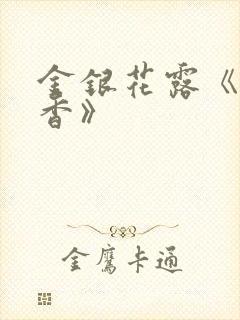 金银花露《
香》
金鹰卡通